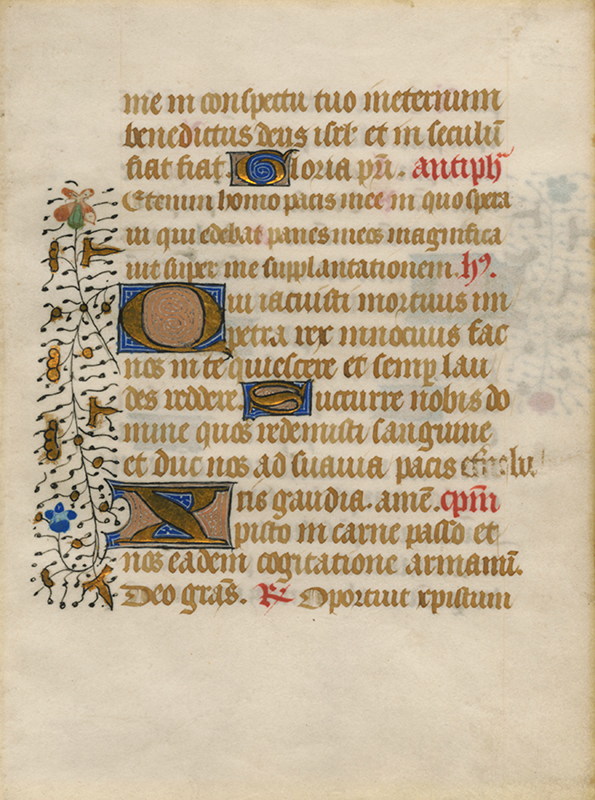 me in conspectu tuo ineternum
benedictus deus isrl' et in seculū
fiat fiat. Gloria pr̄i. antiph'
Etenim homo pacis mee in quo spera
ui qui edebat panes meos magnifica
uit super me supplantationem. hꝯ.
Qui iacuisti mortuus in
petra rex innocuus fac
nos in te quiescere et semꝑ lau
des reddere. Succurre nobis do
mine quos redemisti sanguine
et duc nos ad suauia pacis
nis gaudia. amē. cpm̄
Xpisto in carne passo et
nos eadem cogitatione armamī.
Deo grās. R. Oportuit xpistum